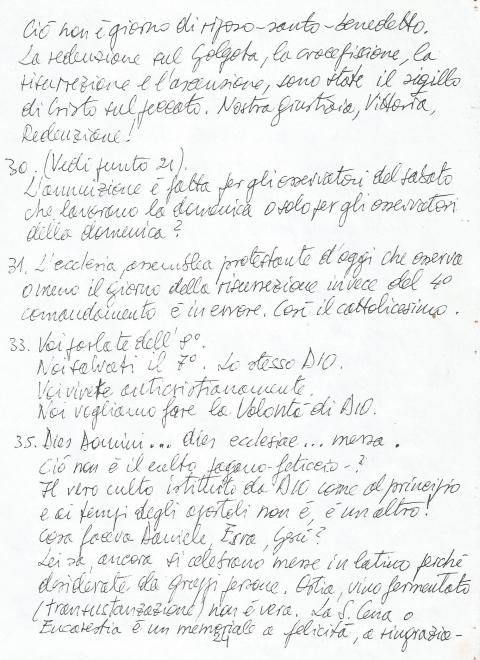 Ciò non è giorno di riposo-santo-benedetto.
La redenzione sul Golgota, la crocefissione, la
risurrezione e l'ascensione, sono state il sigillo
di Cristo sul peccato. Nostra Giustizia, Vittoria,
Redenzione!
30. (Vedi punto 21).
L'ammonizione è fatta per gli osservatori del sabato
che lavorano la domenica o solo per gli osservatori
della domenica?
31. L'ecclesia, assemblea protestante d'oggi che osserva
o meno il giorno della risurrezione invece del 4º
comandamento è in errore. Così il cattolicesimo.
33. Voi parlate dell'8º.
Noi salvati il 7º. Lo stesso DIO.
Voi vivete anticristianamente.
Noi vogliamo fare la Volontà di DIO.
35. Dies Domini... dies ecclesiae... messa.
Ciò non è il culto pagano-feticcio-?
Il vero culto istituito da DIO come al principio
e ai tempi degli apostoli non è, è un altro!
Cosa faceva Daniele, Esra, Gesù?
Lei sa, ancora si celebrano messe in latino perché
desiderate da gruppi persone. Ostia, vino fermentato
(transustanzazione) non è vera. La S. Cena o
Eucarestia è un memoriale a felicità, a ringrazia-
24